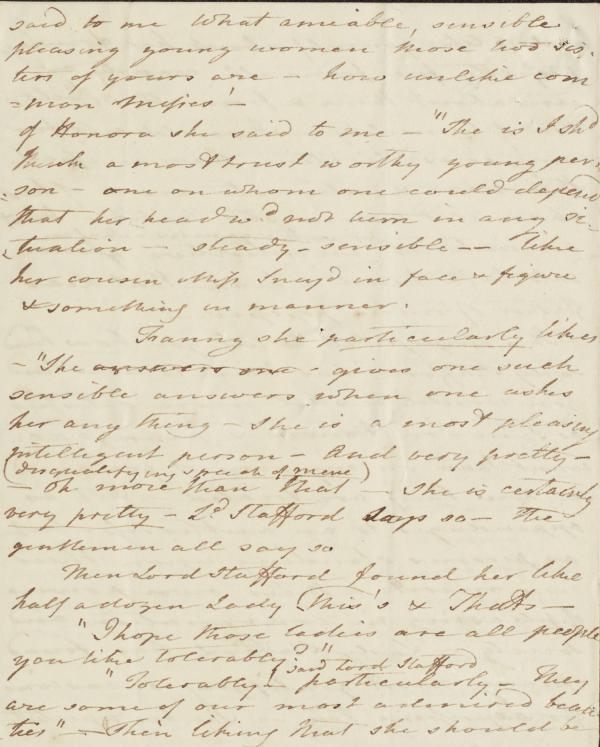 said to me what amiable, sensible
pleasing young women those two sis-
ters of yours are – how unlike com
=mon Misses' –
Of Honora she said to me – "She is I shd
think a most trust worthy young per-
son – one on whom one could depend
that her head wd not turn in any si-
tuation – steady – sensible – like
her cousin Miss Sneyd in face & figure
& something in manner.
Fanny she particularly likes
– "She answers one – gives one such
sensible answers when one asks
her any thing – She is a most pleasing
intelligent person – And very pretty –
(disqualifying speech of mine)
– Oh more than that – she is certainly
very pretty – Ld Stafford says so – The
gentlemen all say so
Then Lord Stafford found her like
half a dozen Lady This's & Thats –
"I hope those ladies are all people
you like tolerably?" said Lord Stafford
"Tolerably! – particularly – They
are some of our most admired beau-
ties" – Then liking that she should be